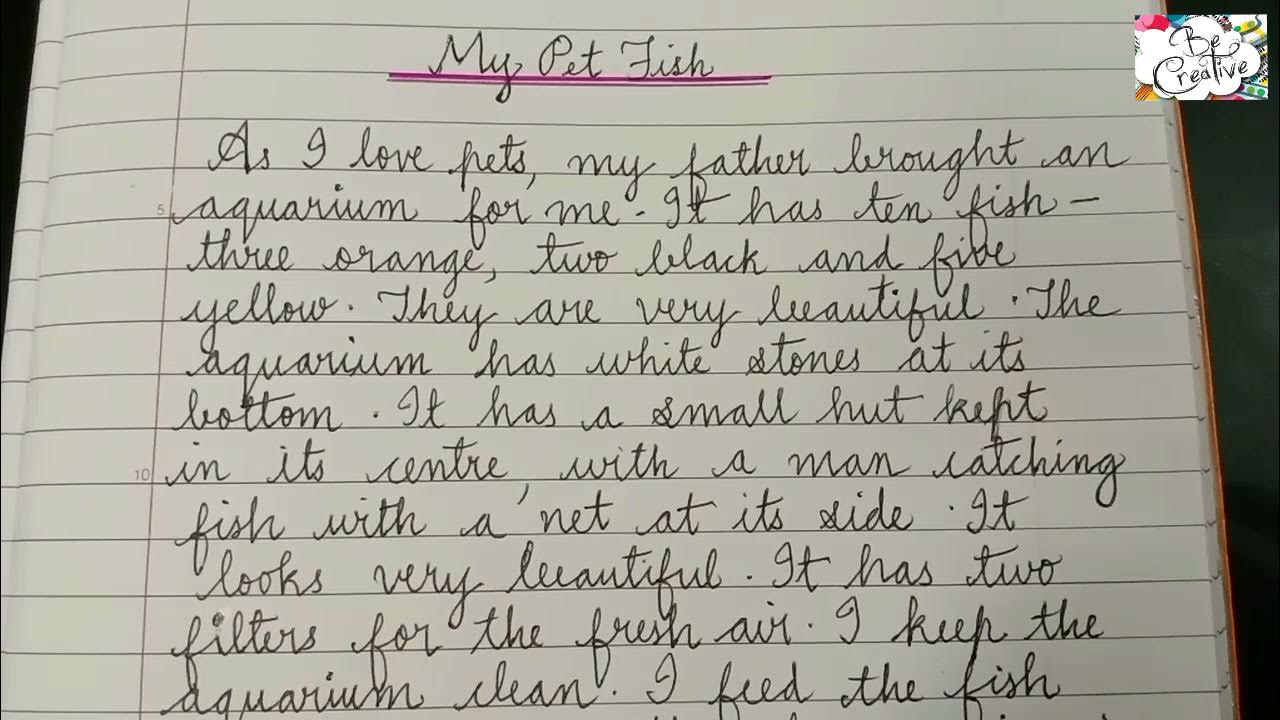 My Pet Fish
Be
Creative
As I love pets, my father brought an
5 aquarium for me. It has ten fish –
three orange, two black and five
yellow. They are very beautiful. The
aquarium has white stones at its
bottom. It has a small hut kept
10 in its centre, with a man catching
fish with a net at its side. It
looks very beautiful. It has two
filters for the fresh air. I keep the
aquarium clean. I feed the fish